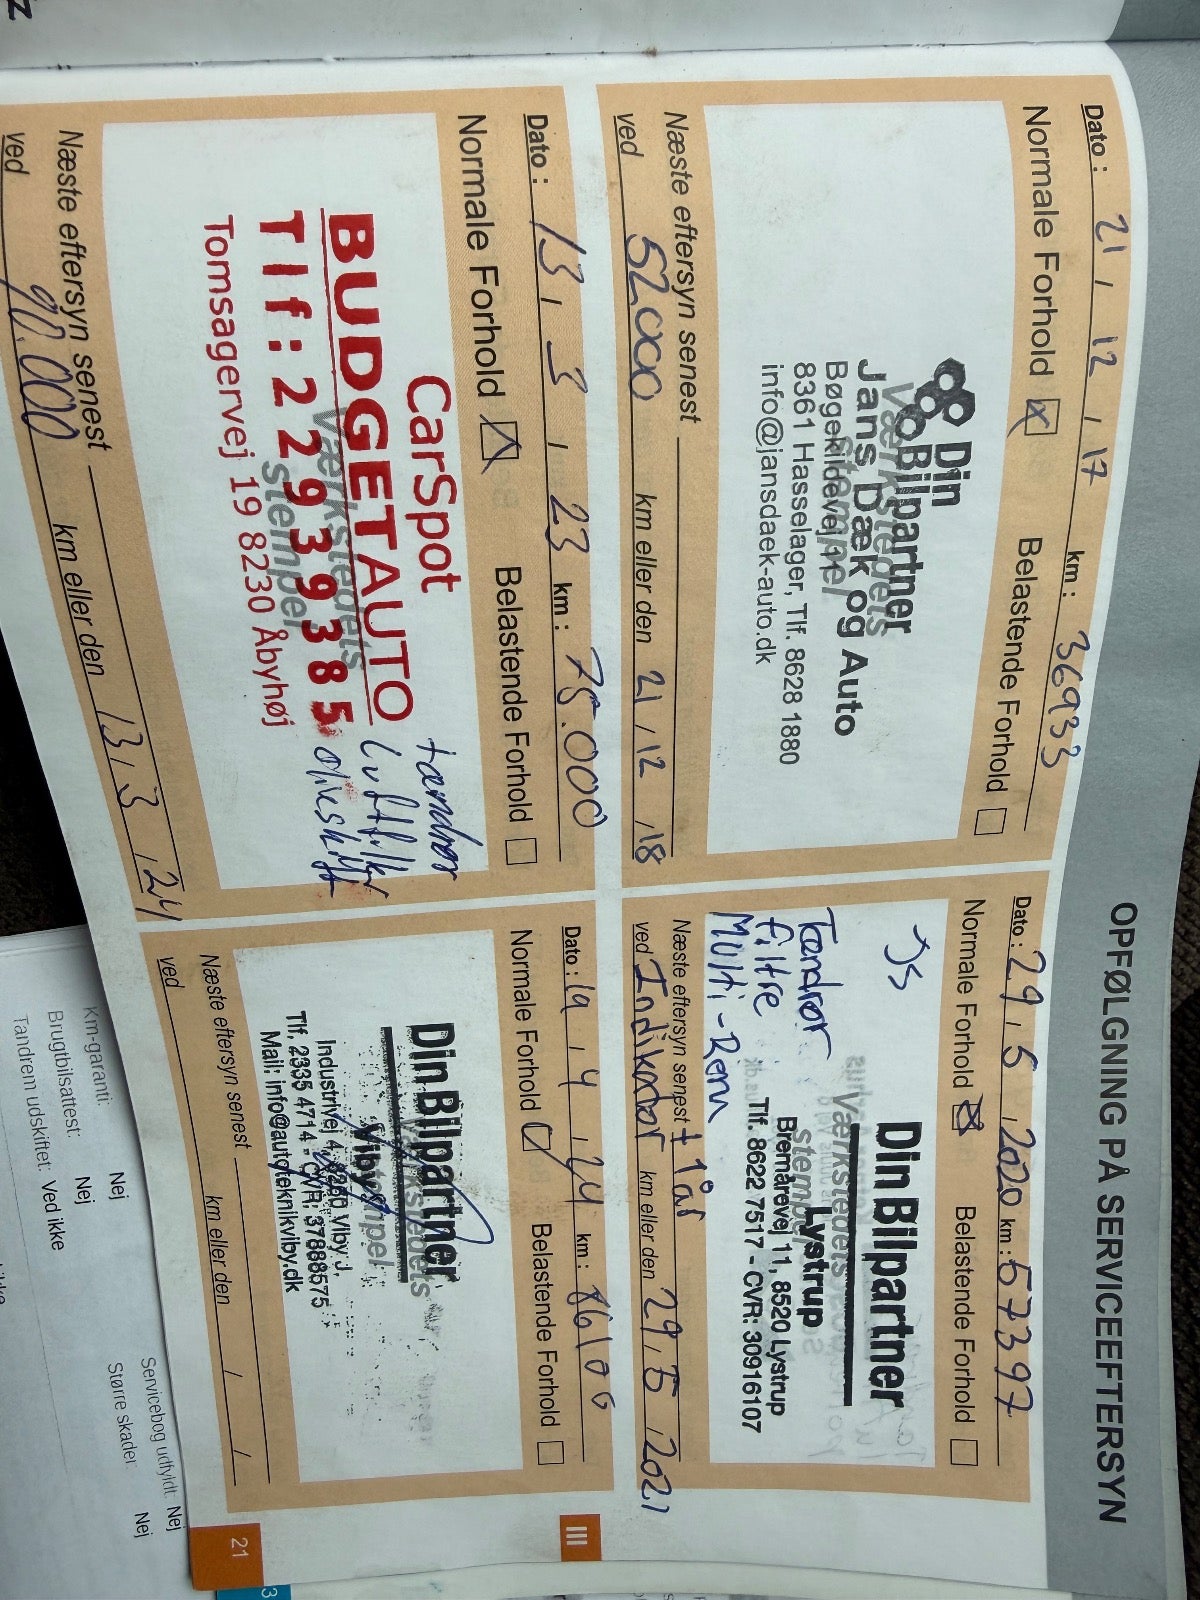 OPFØLGNING PÅ SERVICEEFTERSYN
Dato : 21 , 12 , 17 km : 36933
Normale Forhold Belastende Forhold
Din
Bilpartner
Værkstedets
stempel
Jans Dæk og Auto
Bøgekildevej 11
8361 Hasselager, Tlf. 8628 1880
info@jansdaek-auto.dk
Næste eftersyn senest
ved 52000 km eller den 21 , 12 , 18
Dato : 29 , 5 , 2020 km : 57397
Normale Forhold Belastende Forhold
JS
DinBilpartner
Værkstedets
stempel
Lystrup
Bremårevej 11, 8520 Lystrup
Tlf. 8622 7517 - CVR: 30916107
Tændrør
filtre
Multi-Rem
Næste eftersyn senest ± 1 år
ved Indikator km eller den 29 , 5 , 2021
Dato : 13 , 3 , 23 km : 75.000
Normale Forhold Belastende Forhold
CarSpot
BUDGETAUTO
Værkstedets
stempel
Tlf: 22939385
Tomsagervej 19 8230 Åbyhøj
tændrør
luftfilter
olieskift
Næste eftersyn senest
ved 90.000 km eller den 13 , 3 , 24
Dato : 19 , 4 , 24 km : 86100
Normale Forhold Belastende Forhold
DinBilpartner
Værkstedets
stempel
Viby
Industrivej 4, 8260 Viby J.
Tlf. 2335 4714 - CVR: 37888575
Mail: info@autoteknikviby.dk
Næste eftersyn senest
ved km eller den / /
III
21
3
Km-garanti: Nej
Brugtbilsattest: Nej
Tandrem udskiftet: Ved ikke
Servicebog udfyldt: Nej
Større skader: Nej